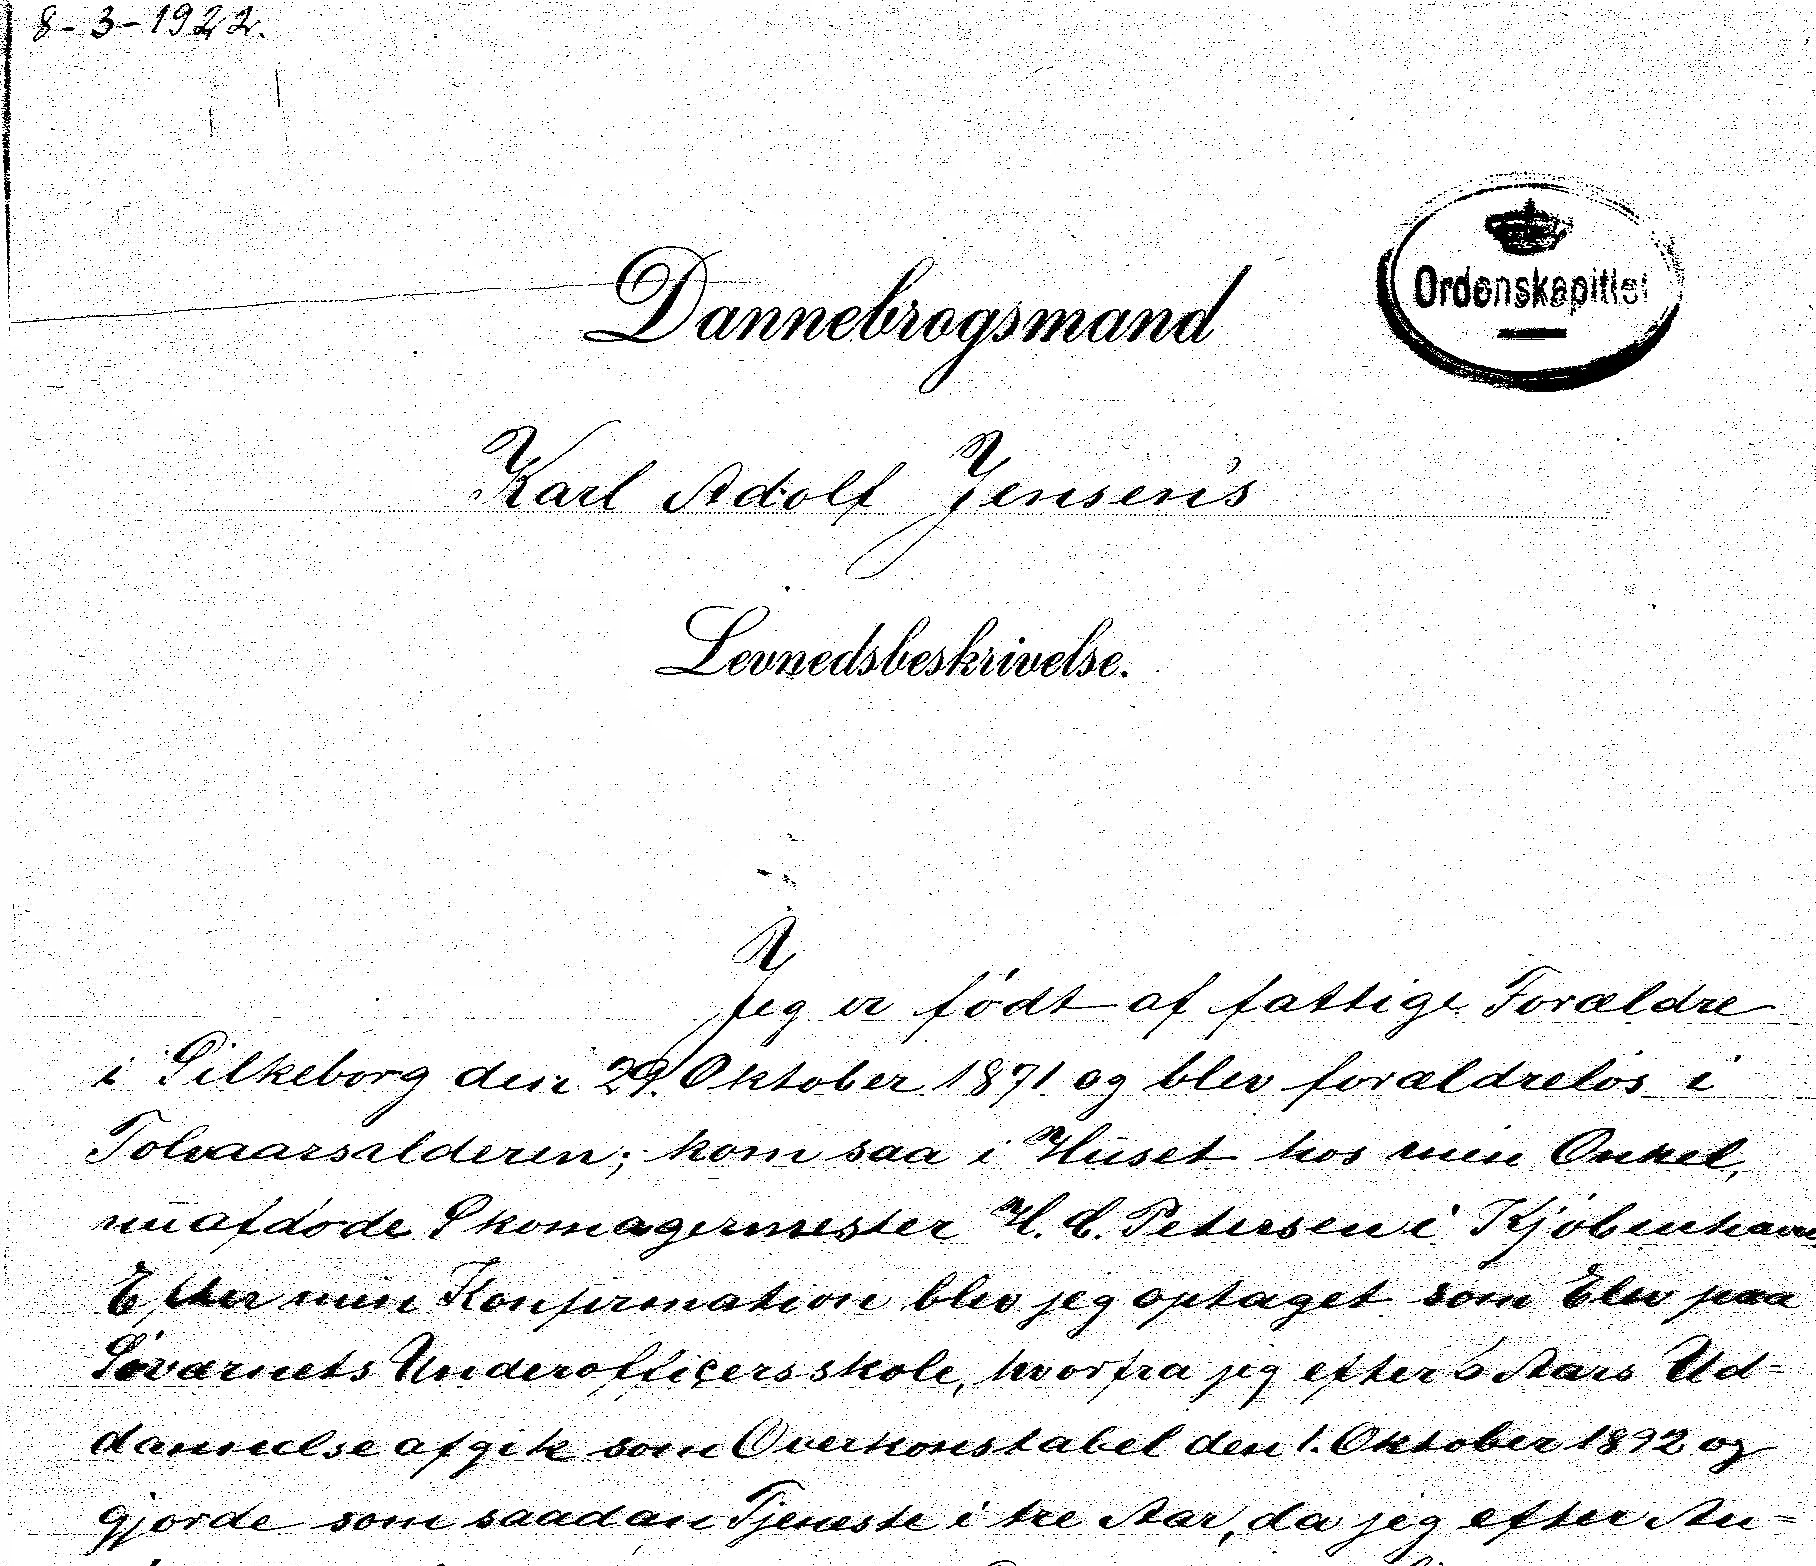 8-3-1922.
Ordenskapitlet
Dannebrogsmand
Karl Adolf Jensen's
Levnedsbeskrivelse.
Jeg er født af fattige Forældre
i Silkeborg den 29. Oktober 1871 og blev forældreløs i
Tolvaarsalderen; kom saa i Huset hos min Onkel,
nu afdøde Skomagermester H. C. Petersen i Kjøbenhavn.
Efter min Konfirmation blev jeg optaget som Elev paa
Søværnets Underofficersskole, hvorfra jeg efter 6 Aars Ud-
dannelse afgik som Overkonstabel den 1. Oktober 1892 og
gjorde som saadan Tjeneste i tre Aar, da jeg efter An-